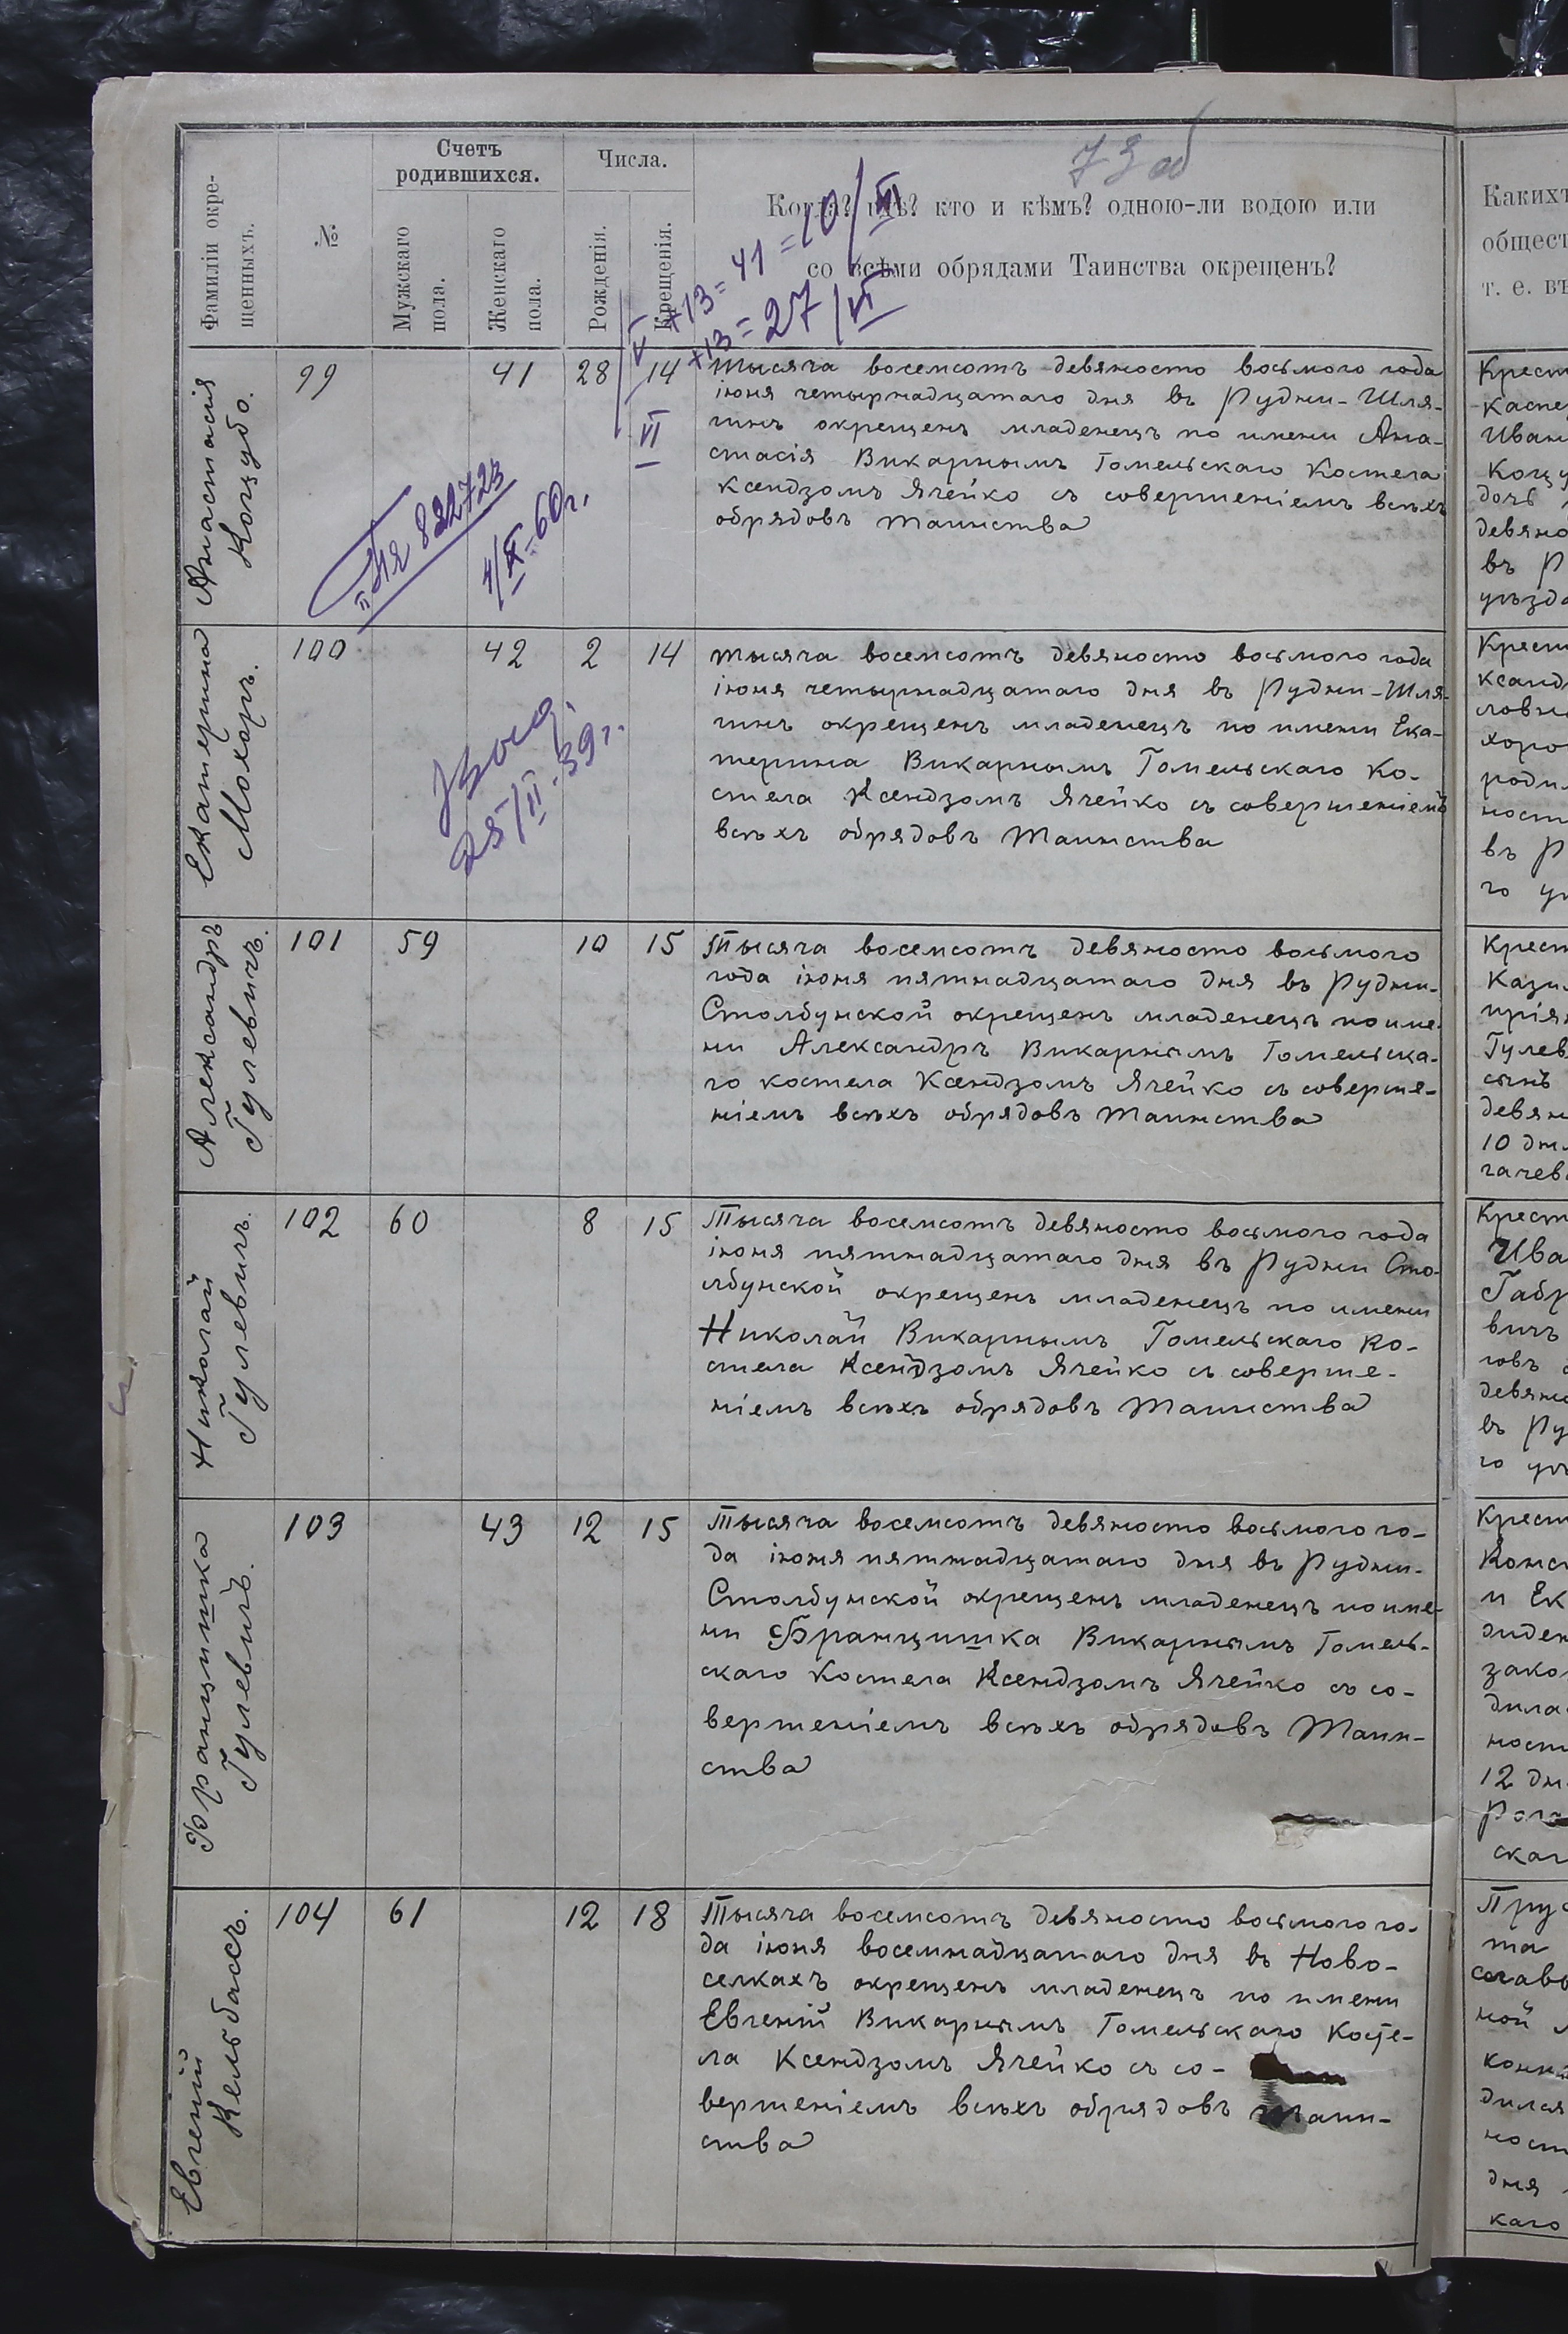 73 об
Фамиліи окре-
щенныхъ.
№
Счетъ
родившихся.
Мужскаго
пола.
Женскаго
пола.
Числа.
Рожденія.
Крещенія.
Когда? гдѣ? кто и кѣмъ? одною-ли водою или
со всѣми обрядами Таинства окрещенъ?
+13= 41 =10/VI
+13=27/VI
Каких
общест
т. е. въ
Анастасія
Коцубо.
99
41
28
14
VI
822723
4/IX-60г.
Тысяча восемсотъ девяносто восьмого года
іюня четырнадцатаго дня въ Рудни-Шля-
гинъ окрещенъ младенецъ по имени Ана-
стасія Викарнымъ Гомельскаго Костела
Ксендзомъ Ячейко съ совершеніемъ всѣхъ
обрядовъ таинства
Крест
Каспе
Иван
Коцу
дочь
девяно
въ Р
уѣзда
Екатерина
Мохорь.
100
42
2
14
25/II-39г.
Тысяча восемсотъ девяносто восьмого года
іюня четырнадцатаго дня въ Рудни-Шля-
гинъ окрещенъ младенецъ по имени Ека-
терина Викарнымъ Гомельскаго Ко-
стела Ксендзомъ Ячейко съ совершеніемъ
всѣхъ обрядовъ Таинства
Крест
ксанд
ловн
хоро
роди
ност
въ Р
го у
Александръ
Гулевичъ.
101
59
10
15
Тысяча восемсотъ девяносто восьмого
года іюня пятнадцатаго дня въ Рудни-
Столбунской окрещенъ младенецъ по име-
ни Александръ Викарнымъ Гомельска-
го костела Ксендзомъ Ячейко съ соверше-
ніемъ всѣхъ обрядовъ Таинства
Крест
Кази
прія
Гулев
сынъ
девян
10 дн
гачев
Николай
Гулевичъ.
102
60
8
15
Тысяча восемсотъ девяносто восьмого года
іюня пятнадцатаго дня въ Рудни Сто-
лбунской окрещенъ младенецъ по имени
Николай Викарнымъ Гомельскаго Ко-
стела Ксендзомъ Ячейко съ соверше-
ніемъ всѣхъ обрядовъ Таинства
Крест
Ива
Габр
вичъ
говъ
девяно
въ Ру
го уѣ
Францишка
Гулевичъ.
103
43
12
15
Тысяча восемсотъ девяносто восьмого го-
да іюня пятнадцатаго дня въ Рудни-
Столбунской окрещенъ младенецъ по име-
ни Францишка Викарнымъ Гомель-
скаго Костела Ксендзомъ Ячейко съ со-
вершеніемъ всѣхъ обрядовъ Таин-
ства
Крест
Конст
и Ек
диден
зако
дила
ност
12 дн
Рога
скаг
Евгеній
Кельбасъ.
104
61
12
18
Тысяча восемсотъ девяносто восьмого го-
да іюня восемнадцатаго дня въ Ново-
селкахъ окрещенъ младенецъ по имени
Евгеній Викарнымъ Гомельскаго Косте-
ла Ксендзомъ Ячейко съ со-
вершеніемъ всѣхъ обрядовъ Таин-
ства
Прус
та
славы
ной
конн
дился
ност
дня
каго